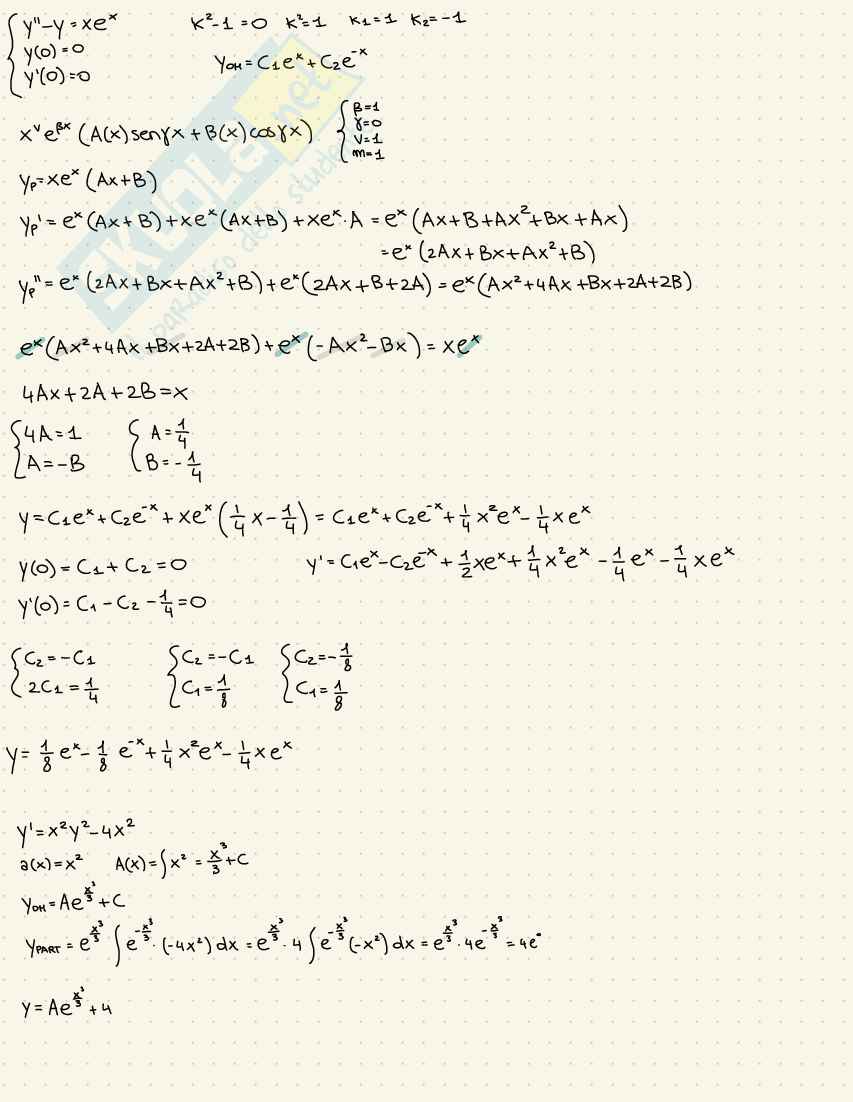 y''-y = xeˣ   k²-1 = 0   k² = 1   k₁ = 1   k₂ = -1
y(0) = 0
y'(0) = 0   y_OH = C₁eˣ + C₂e⁻ˣ
xᵛe^(βx) (A(x) senγx + B(x) cosγx)   { β=1
γ=0
v=1
m=1
yₚ = xeˣ (Ax+B)
yₚ' = eˣ(Ax+B) + xeˣ(Ax+B) + xeˣ·A = eˣ(Ax+B+Ax²+Bx+Ax)
= eˣ(2Ax+Bx+Ax²+B)
yₚ'' = eˣ(2Ax+Bx+Ax²+B) + eˣ(2Ax+B+2A) = eˣ(Ax²+4Ax+Bx+2A+2B)
eˣ(Ax²+4Ax+Bx+2A+2B) + eˣ(-Ax²-Bx) = xeˣ
4Ax+2A+2B = x
{ 4A = 1   { A = 1/4
A = -B   B = -1/4
y = C₁eˣ + C₂e⁻ˣ + xeˣ(1/4 x - 1/4) = C₁eˣ + C₂e⁻ˣ + 1/4 x²eˣ - 1/4 xeˣ
y(0) = C₁ + C₂ = 0   y' = C₁eˣ - C₂e⁻ˣ + 1/2 xeˣ + 1/4 x²eˣ - 1/4 eˣ - 1/4 xeˣ
y'(0) = C₁ - C₂ - 1/4 = 0
{ C₂ = -C₁   { C₂ = -C₁   { C₂ = -1/8
2C₁ = 1/4   C₁ = 1/8   C₁ = 1/8
y = 1/8 eˣ - 1/8 e⁻ˣ + 1/4 x²eˣ - 1/4 xeˣ
y' = x²y² - 4x²
a(x) = x²   A(x) = ∫x² = x³/3 + C
y_OH = Ae^(x³/3) + C
y_PART = e^(x³/3) ∫e^(-x³/3)·(-4x²) dx = e^(x³/3)·4∫e^(-x³/3)(-x²) dx = e^(x³/3)·4e^(-x³/3) = 4e°
y = Ae^(x³/3) + 4